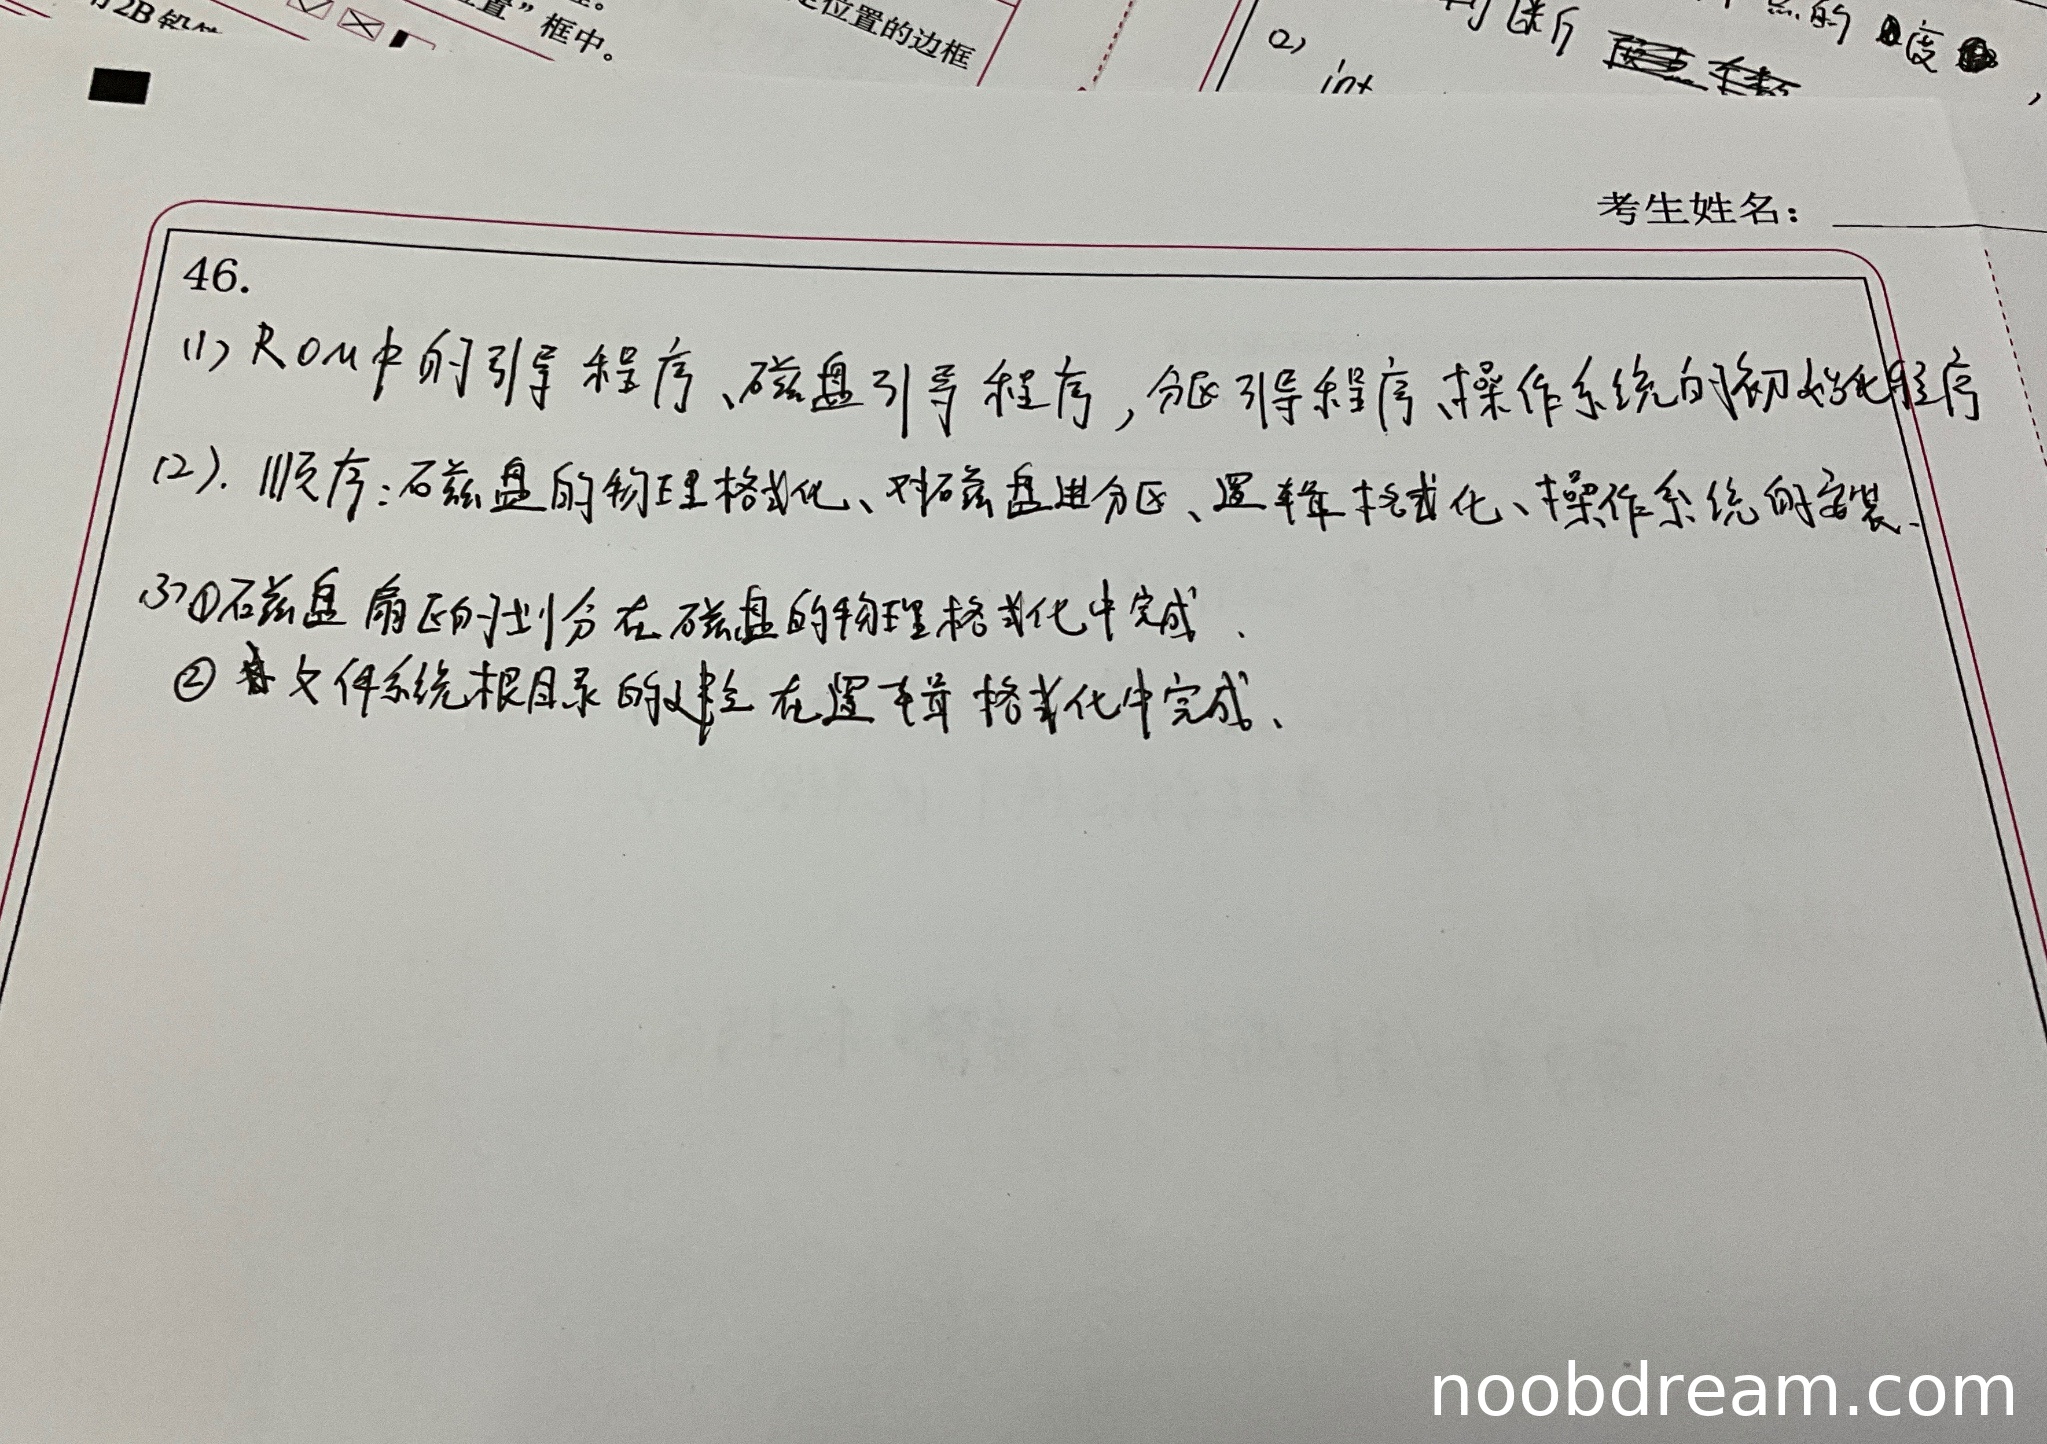 2B
置”框中。
位置的边框
的 度
(2)
int
考生姓名：
46.
(1) ROM中的引导程序、磁盘引导程序，分区引导程序、操作系统的初始化程序
(2). 顺序：磁盘的物理格式化、对磁盘进分区、逻辑格式化、操作系统的安装.
(3) ①磁盘扇区的划分在磁盘的物理格式化中完成.
② 文件系统根目录的建立在逻辑格式化中完成、
noobdream.com